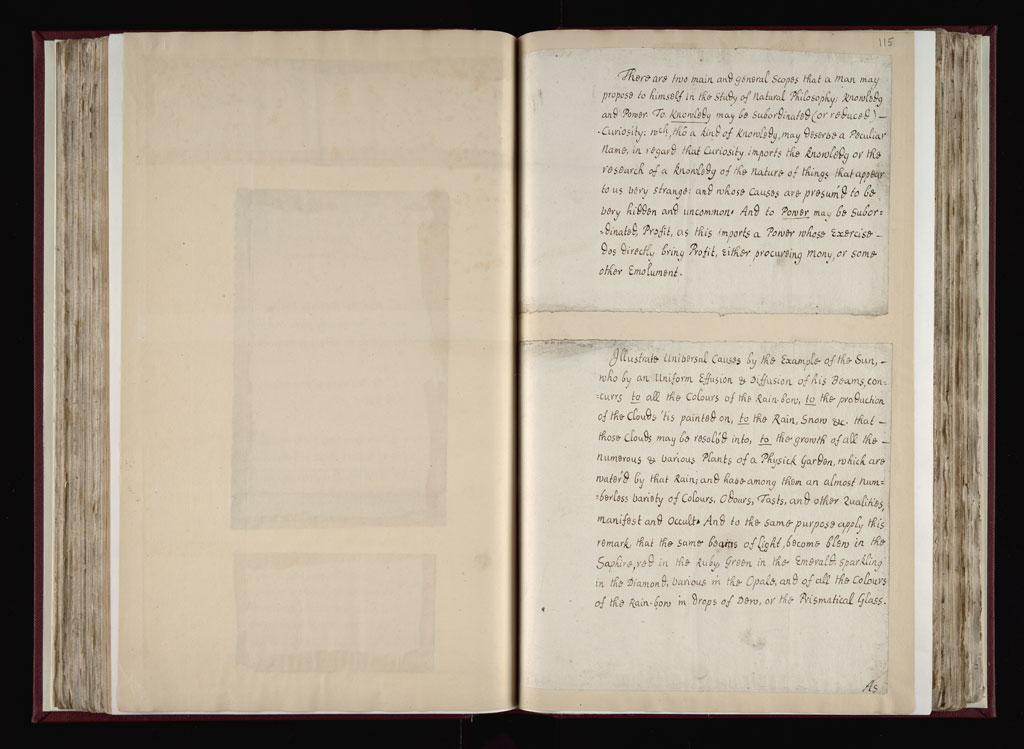 115
There are two main and general Scopes that a Man may
propose to himself in the study of Natural Philosophy; Knowledg
and Power. To Knowledg may be subordinated (or reduced) –
Curiosity: wch, tho a kind of Knowledg, may deserve a Peculiar
Name, in regard that Curiosity imports the knowledg or the
research of a knowledg of the Nature of things that appear
to us very strange: and whose Causes are presum'd to be
very hidden and uncommon. And to Power may be Subor=
=dinated, Profit, as this imports a Power whose Exercise –
dos directly bring Profit, either procureing Mony, or some
other Emolument.
Illustrate Universal Causes by the Example of the Sun, –
who by an Uniform Effusion & Diffusion of his Beams, con=
=currs to all the Colours of the Rain-bow, to the production
of the Clouds 'tis painted on, to the Rain, Snow &c. that –
those Clouds may be resolv'd into, to the growth of all the –
numerous & various Plants of a Physick Garden, which are
water'd by that Rain; and have among them an almost num=
=berless variety of Colours, Odours, Tasts, and other Qualities,
manifest and Occult. And to the same purpose apply this
remark, that the same beams of Light, become blew in the
Saphire, red in the Ruby, Green in the Emerald, sparkling
in the Diamond, various in the Opale, and of all the Colours
of the Rain-bow in drops of Dew, or the Prismatical Glass.
As